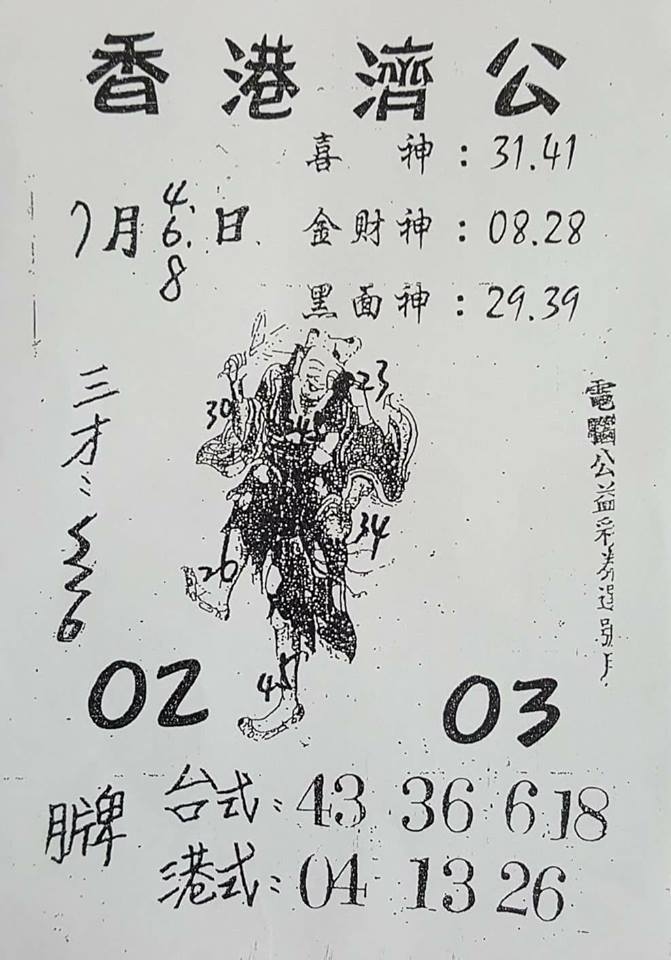 香港濟公
喜神:31.41
7月4.6.8日
金財神:08.28
黑面神:29.39
三才:
23
30
34
26
45
電腦公益彩券選號用
02
03
牌
台式:43 36 6 18
港式:04 13 26